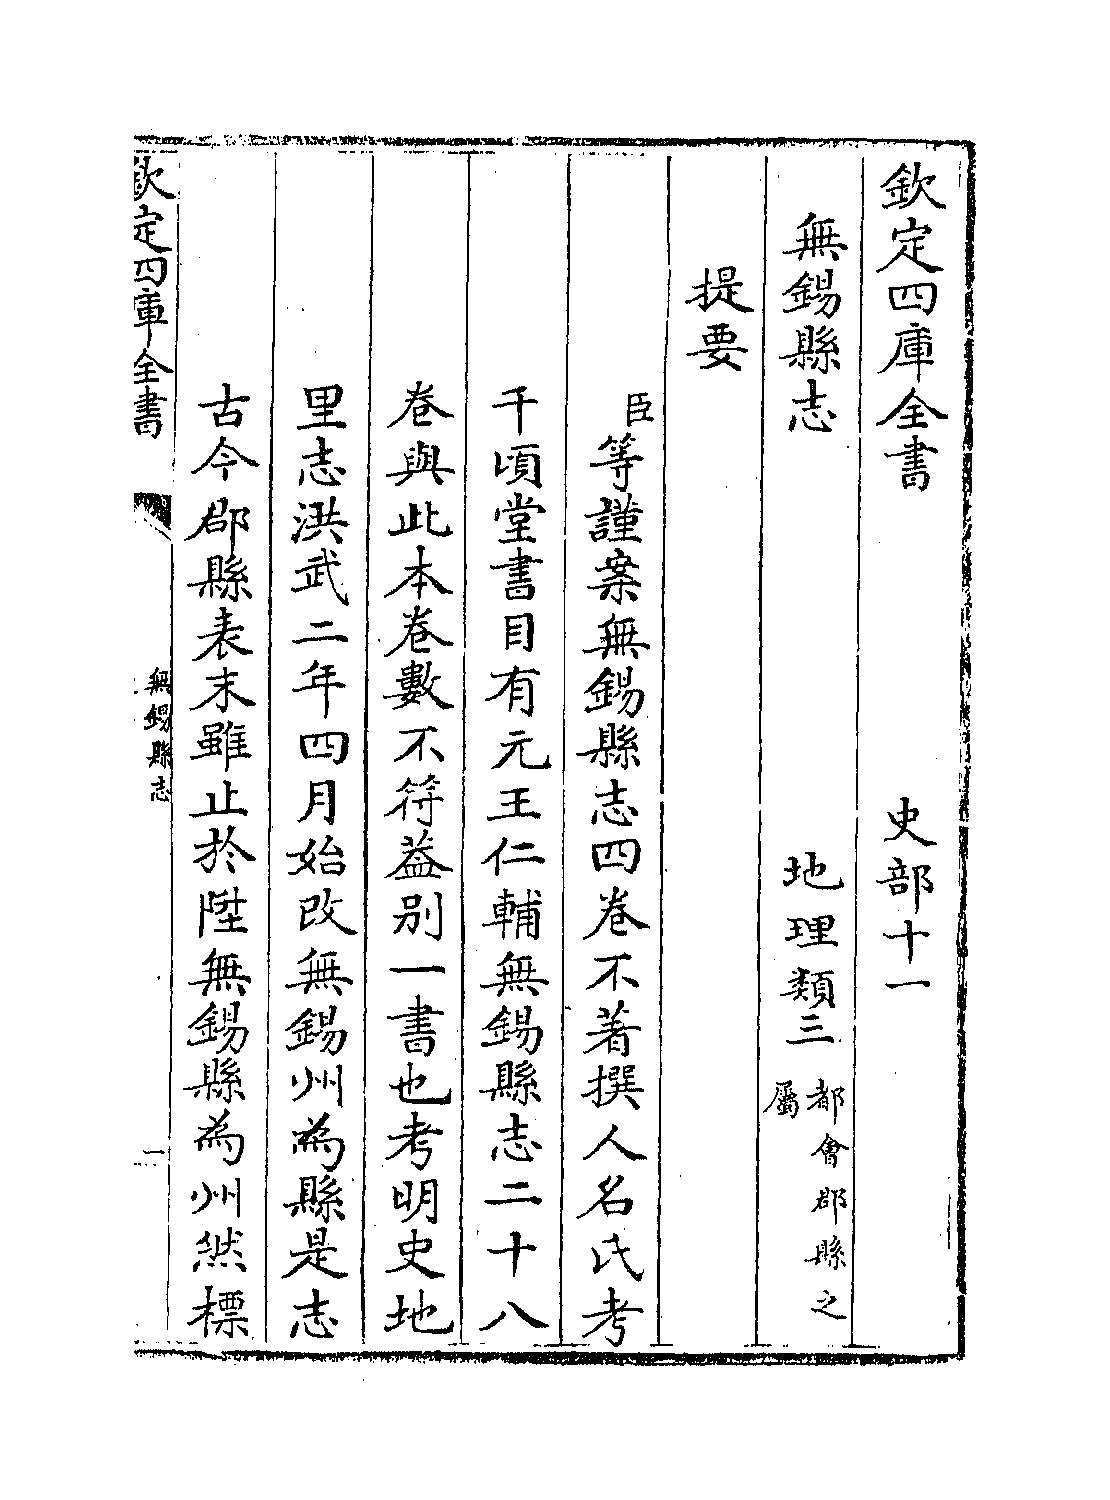 欽定四庫全書　史部十一
無錫縣志　地理類三　都會郡縣之屬
提要
臣等謹案無錫縣志四卷不著撰人名氏考
千頃堂書目有元王仁輔無錫縣志二十八
卷與此本卷數不符葢別一書也考明史地
里志洪武二年四月始改無錫州為縣是志
古今郡縣表末雖止於陞無錫縣為州然標
欽定四庫全書　無錫縣志　一